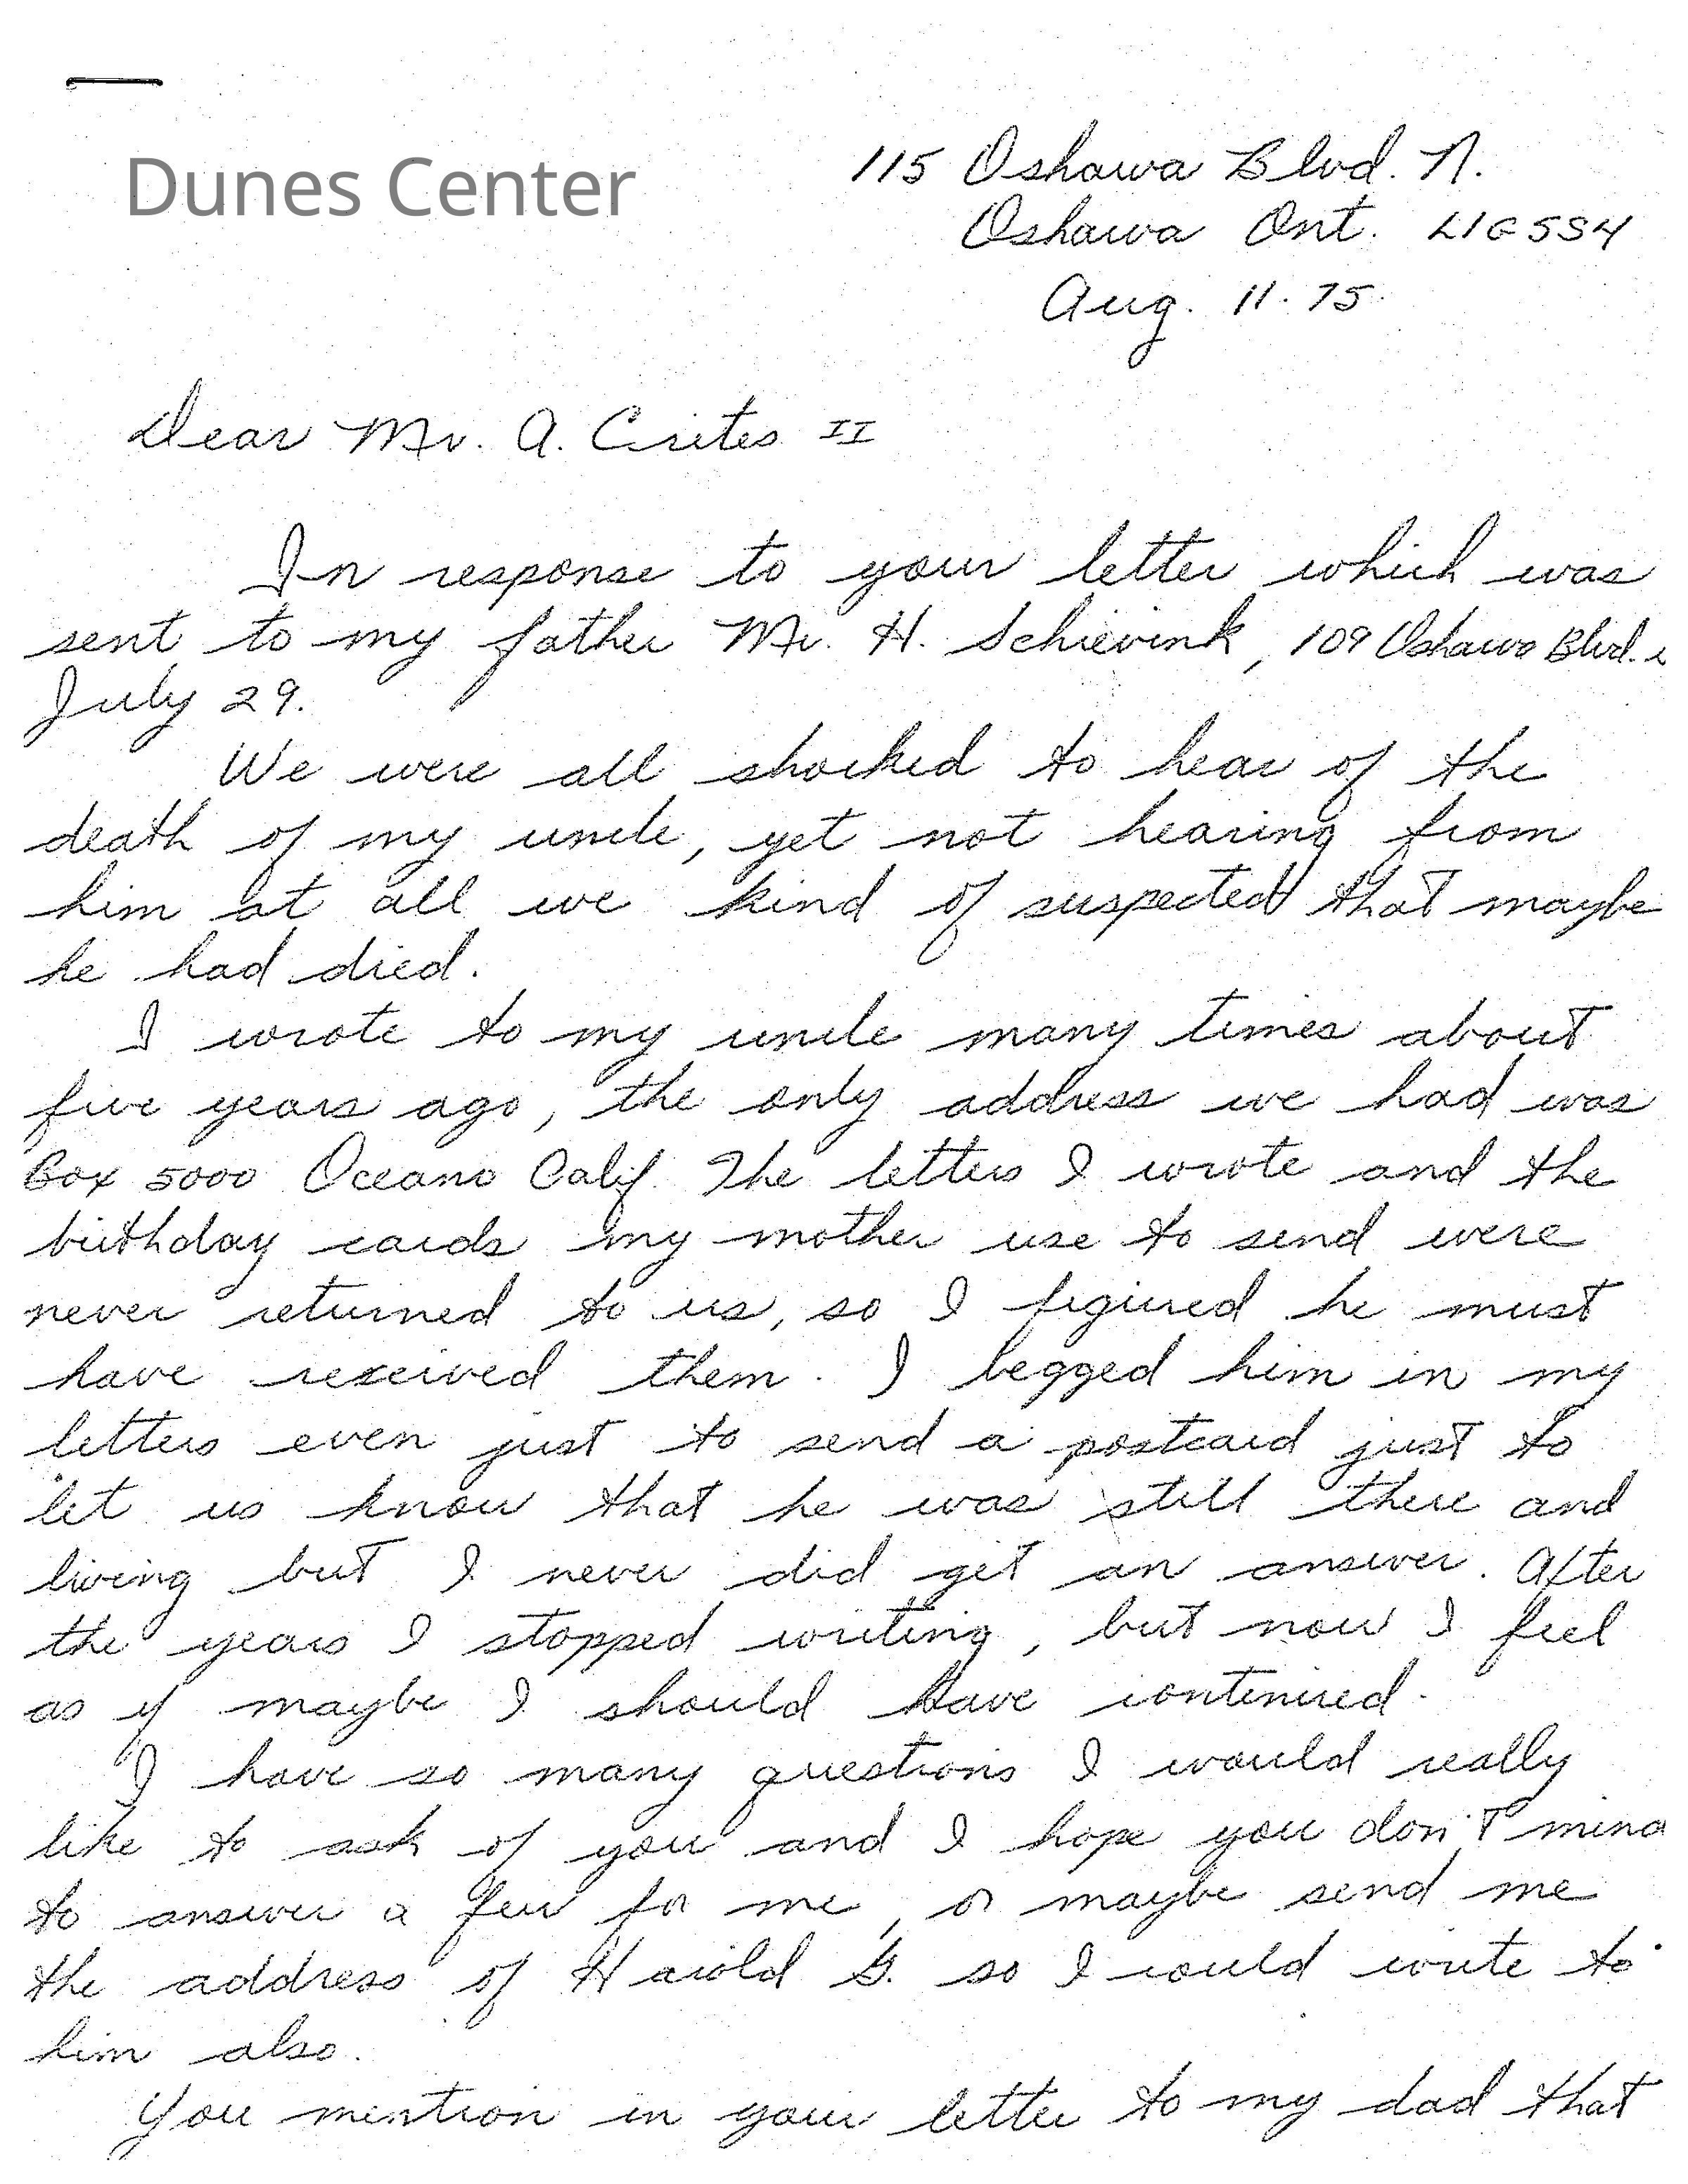 Dunes Center
115 Oshawa Blvd. N.
Oshawa Ont. L1G 5S4
Aug. 11. 75.
Dear Mr. A. Crites II
In response to your letter which was
sent to my father Mr. H. Schievink, 109 Oshawa Blvd.
July 29.
We were all shocked to hear of the
death of my uncle, yet not hearing from
him at all we kind of suspected that maybe
he had died.
I wrote to my uncle many times about
five years ago, the only address we had was
Box 5000 Oceano Calif. The letters I wrote and the
birthday cards my mother use to send were
never returned to us, so I figured he must
have received them. I begged him in my
letters even just to send a postcard just to
let us know that he was still there and
living but I never did get an answer. After
the years I stopped writing, but now I feel
as if maybe I should have continued.
I have so many questions I would really
like to ask of you and I hope you don't mind
to answer a few for me, or maybe send me
the address of Harold G. so I could write to
him also.
You mention in your letter to my dad that